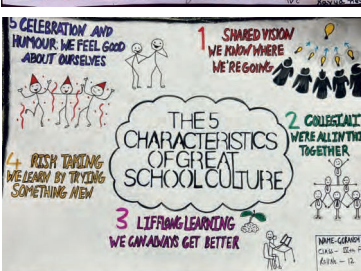 5 CELEBRATION AND
HUMOUR WE FEEL GOOD
ABOUT OURSELVES
1 SHARED VISION
WE KNOW WHERE
WE'RE GOING
THE 5
CHARACTERISTICS
OF GREAT
SCHOOL CULTURE
2
WE'RE ALL IN THI
TOGETHER
4 RISK TAKING
WE LEARN BY TRYING
SOMETHING NEW
3 LIFFLONG LEARNING
WE CAN ALWAYS GET BETTER
NAME-
CLASS-
- 12